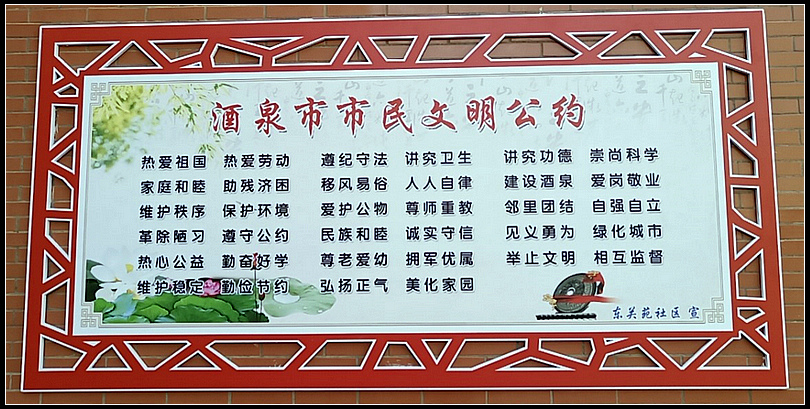 酒泉市市民文明公约
热爱祖国 热爱劳动 遵纪守法 讲究卫生 讲究功德 崇尚科学
家庭和睦 助残济困 移风易俗 人人自律 建设酒泉 爱岗敬业
维护秩序 保护环境 爱护公物 尊师重教 邻里团结 自强自立
革除陋习 遵守公约 民族和睦 诚实守信 见义勇为 绿化城市
热心公益 勤奋好学 尊老爱幼 拥军优属 举止文明 相互监督
维护稳定 勤俭节约 弘扬正气 美化家园
东关苑社区 宣